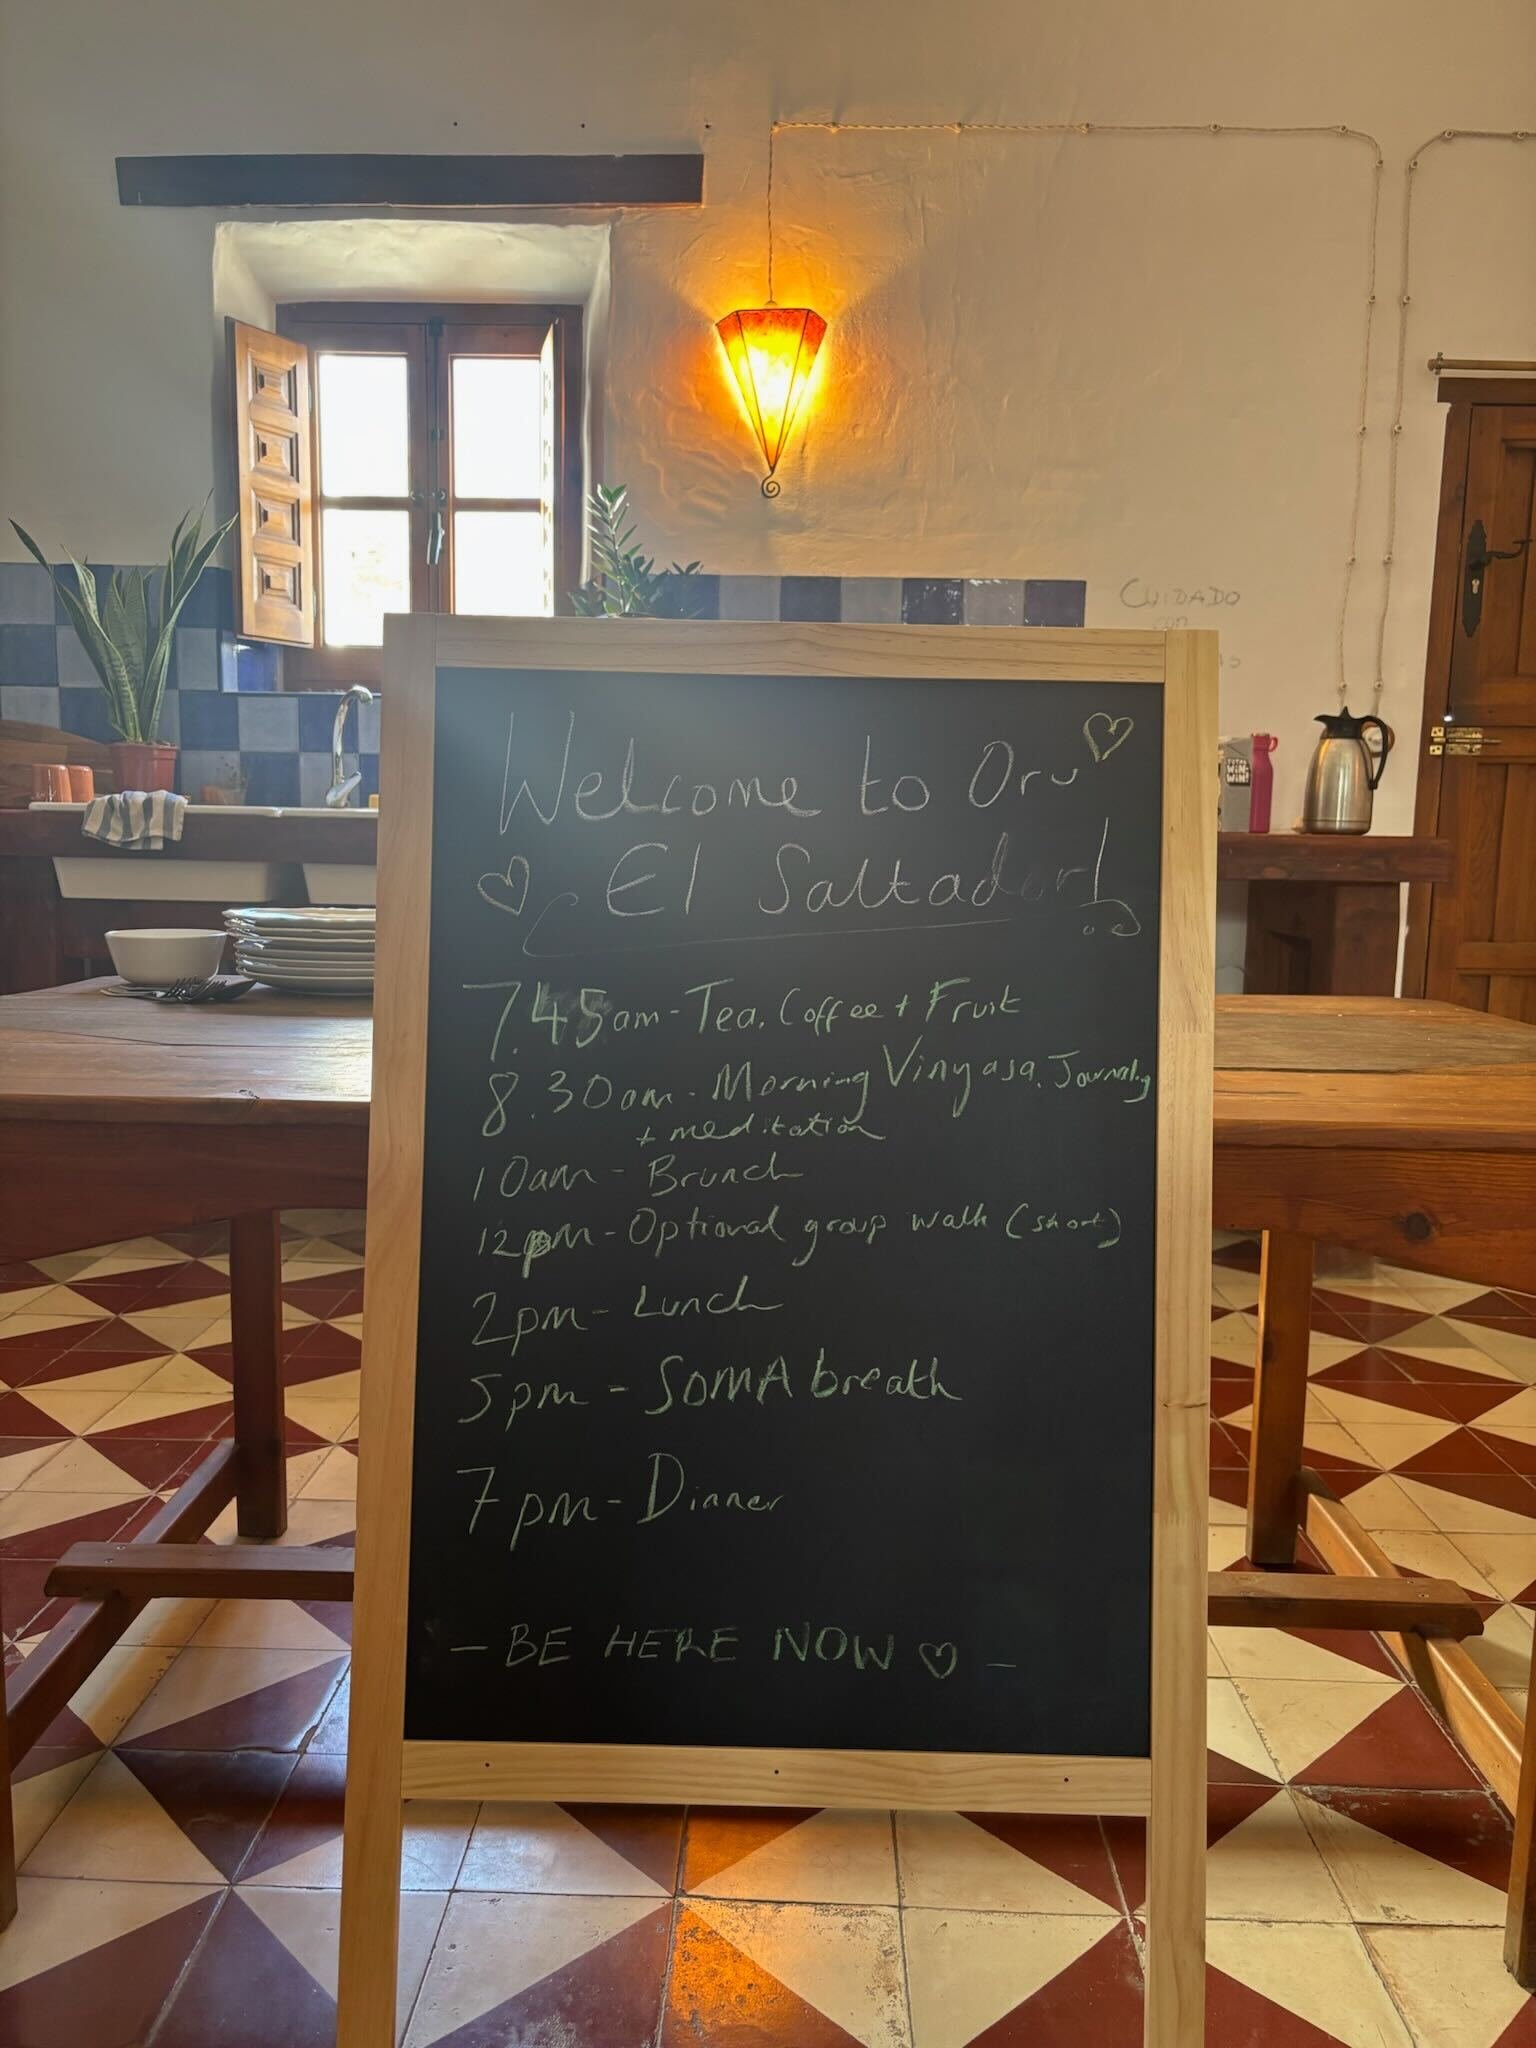 CUIDADO
CON
Welcome to Oru
El Saltador!
7.45am - Tea, Coffee + Fruit
8.30am - Morning Vinyasa, Journaling
+ meditation
10am - Brunch
12pm - Optional group walk (short)
2pm - Lunch
5pm - SOMA breath
7pm - Dinner
- BE HERE NOW -
TOTAL
WIN-
WIN!